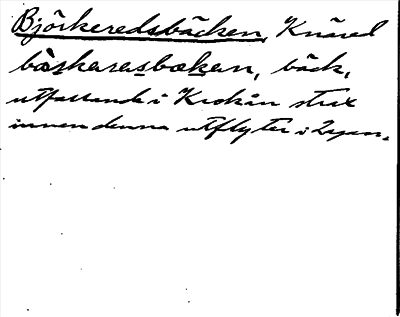 Björkeredsbäcken, Knäred
bàskaresbækan, bäck,
utfallande i Krokån strax
innan denna utflyter i Lagan.